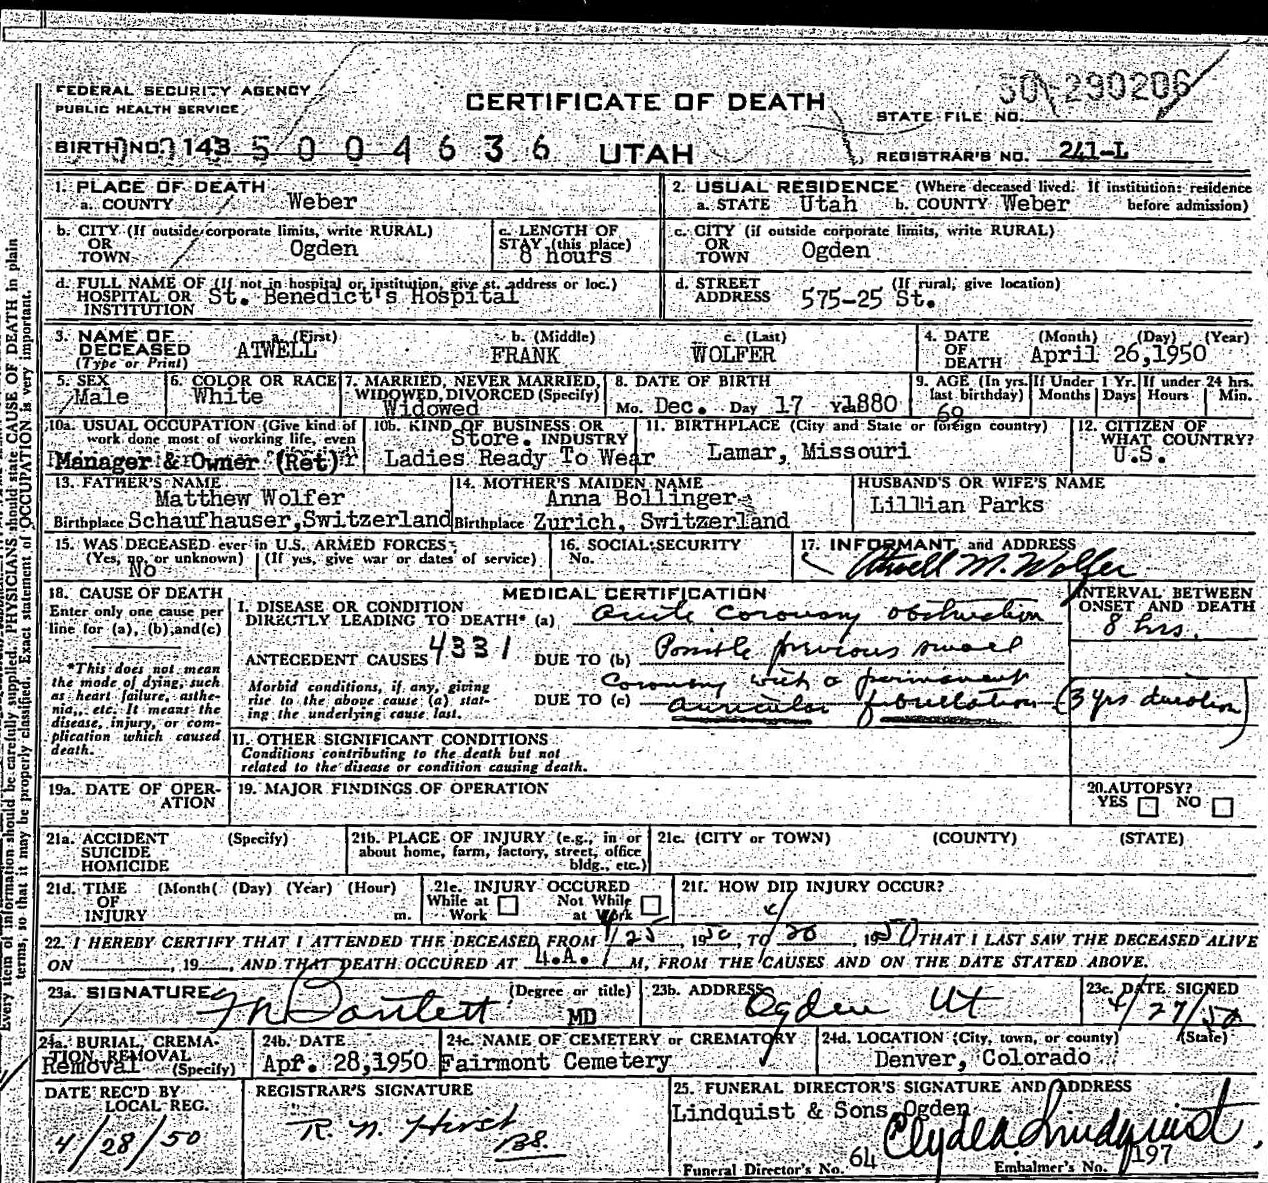 FEDERAL SECURITY AGENCY
PUBLIC HEALTH SERVICE
CERTIFICATE OF DEATH
50 290206
STATE FILE NO.
BIRTH NO. 143 5 0 0 4 6 3 6 UTAH
REGISTRAR'S NO. 241-L
1. PLACE OF DEATH
a. COUNTY Weber
2. USUAL RESIDENCE (Where deceased lived. If institution: residence before admission)
a. STATE Utah b. COUNTY Weber
b. CITY (If outside corporate limits, write RURAL)
OR TOWN Ogden
c. LENGTH OF STAY (this place)
8 hours
c. CITY (if outside corporate limits, write RURAL)
OR TOWN Ogden
d. FULL NAME OF (If not in hospital or institution, give st. address or loc.)
HOSPITAL OR INSTITUTION St. Benedict's Hospital
d. STREET ADDRESS (If rural, give location)
575-25 St.
3. NAME OF DECEASED (Type or Print)
a. (First) b. (Middle) c. (Last)
ATWELL FRANK WOLFER
4. DATE OF DEATH (Month) (Day) (Year)
April 26,1950
5. SEX
Male
6. COLOR OR RACE
White
7. MARRIED, NEVER MARRIED, WIDOWED, DIVORCED (Specify)
Widowed
8. DATE OF BIRTH
Mo. Dec. Day 17 Yr. 1880
9. AGE (In yrs. last birthday)
69
If Under 1 Yr. Months Days
If under 24 hrs. Hours Min.
10a. USUAL OCCUPATION (Give kind of work done most of working life, even
Manager & Owner (Ret)
10b. KIND OF BUSINESS OR INDUSTRY
Store.
Ladies Ready To Wear
11. BIRTHPLACE (City and State or foreign country)
Lamar, Missouri
12. CITIZEN OF WHAT COUNTRY?
U.S.
13. FATHER'S NAME
Matthew Wolfer
Birthplace Schaufhauser, Switzerland
14. MOTHER'S MAIDEN NAME
Anna Bollinger
Birthplace Zurich, Switzerland
HUSBAND'S OR WIFE'S NAME
Lillian Parks
15. WAS DECEASED ever in U.S. ARMED FORCES?
(Yes, no, or unknown) (If yes, give war or dates of service)
No
16. SOCIAL SECURITY
No.
17. INFORMANT and ADDRESS
Atwell M. Wolfer
18. CAUSE OF DEATH
Enter only one cause per line for (a), (b), and (c)
*This does not mean the mode of dying, such as heart failure, asthenia, etc. It means the disease, injury, or complication which caused death.
MEDICAL CERTIFICATION
I. DISEASE OR CONDITION DIRECTLY LEADING TO DEATH* (a) acute coronary obstruction
INTERVAL BETWEEN ONSET AND DEATH
8 hrs.
ANTECEDENT CAUSES 4331
DUE TO (b) Possible previous small
coronary with a permanent
Morbid conditions, if any, giving rise to the above cause (a) stating the underlying cause last.
DUE TO (c) auricular fibrillation (3 yrs duration)
II. OTHER SIGNIFICANT CONDITIONS
Conditions contributing to the death but not related to the disease or condition causing death.
19a. DATE OF OPERATION
19. MAJOR FINDINGS OF OPERATION
20. AUTOPSY?
YES NO
21a. ACCIDENT (Specify)
SUICIDE
HOMICIDE
21b. PLACE OF INJURY (e.g., in or about home, farm, factory, street, office bldg., etc.)
21c. (CITY or TOWN) (COUNTY) (STATE)
21d. TIME OF INJURY (Month) (Day) (Year) (Hour)
m.
21e. INJURY OCCURED
While at Work Not While at Work
21f. HOW DID INJURY OCCUR?
22. I HEREBY CERTIFY THAT I ATTENDED THE DECEASED FROM 4/25, 1950, TO 4/26, 1950 THAT I LAST SAW THE DECEASED ALIVE
ON , 19 , AND THAT DEATH OCCURED AT 4.A. M, FROM THE CAUSES AND ON THE DATE STATED ABOVE.
23a. SIGNATURE (Degree or title)
Bartlett MD
23b. ADDRESS
Ogden Ut
23c. DATE SIGNED
4/27/50
24a. BURIAL, CREMATION, REMOVAL (Specify)
Removal
24b. DATE
Apr. 28,1950
24c. NAME OF CEMETERY or CREMATORY
Fairmont Cemetery
24d. LOCATION (City, town, or county) (State)
Denver, Colorado
DATE REC'D BY LOCAL REG.
4/28/50
REGISTRAR'S SIGNATURE
R. N. Hirst
BS.
25. FUNERAL DIRECTOR'S SIGNATURE AND ADDRESS
Lindquist & Sons Ogden
Clyde A. Lindquist
Funeral Director's No. 64 Embalmer's No. 197
Every item of information should be carefully supplied. PHYSICIANS should state CAUSE OF DEATH in plain
terms, so that it may be properly classified. Exact statement of OCCUPATION is very important.